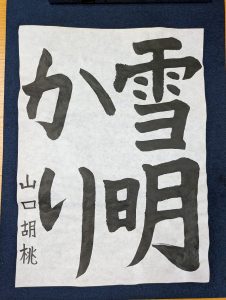 雪明
かり
山口胡桃